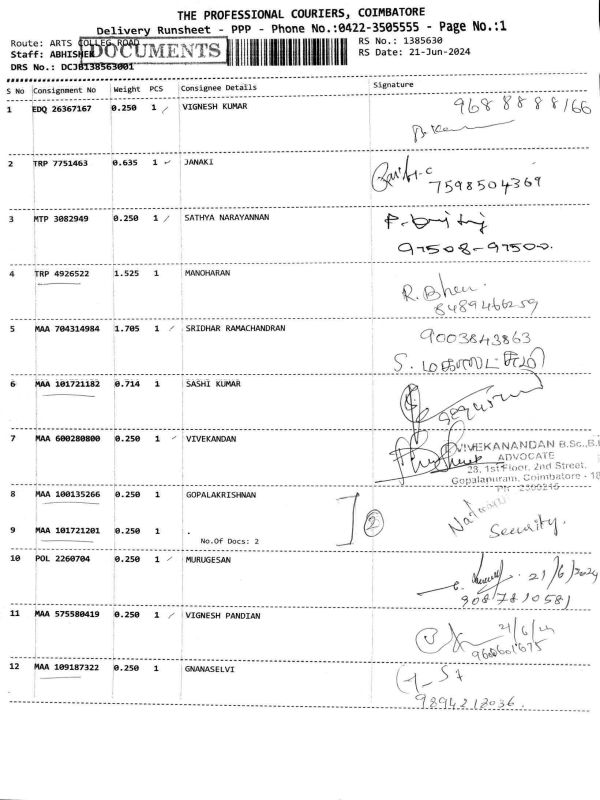 THE PROFESSIONAL COURIERS, COIMBATORE
Delivery Runsheet - PPP - Phone No.:0422-3505555 - Page No.:1
Route: ARTS COLLEG ROAD
RS No.: 1385630
Staff: ABHISHEK
DOCUMENTS
RS Date: 21-Jun-2024
DRS No.: DCJB138563001
S No Consignment No Weight PCS Consignee Details Signature
1 EDQ 26367167 0.250 1 VIGNESH KUMAR
968 8888166
2 TRP 7751463 0.635 1 JANAKI
7598504369
3 MTP 3082949 0.250 1 SATHYA NARAYANNAN
97508-97500.
4 TRP 4926522 1.525 1 MANOHARAN
R. Bhen.
8489466259
5 MAA 704314984 1.705 1 SRIDHAR RAMACHANDRAN
9003843863
6 MAA 101721182 0.714 1 SASHI KUMAR
7 MAA 600280800 0.250 1 VIVEKANDAN
VIVEKANANDAN B.Sc.,B.L
ADVOCATE
28, 1st Floor, 2nd Street,
Gopalanuram, Coimbatore - 18
8 MAA 100135266 0.250 1 GOPALAKRISHNAN
2
9 MAA 101721201 0.250 1 .
Security.
No.Of Docs: 2
10 POL 2260704 0.250 1 MURUGESAN
21/6/2024
9087810581
11 MAA 575580419 0.250 1 VIGNESH PANDIAN
21/6/24
12 MAA 109187322 0.250 1 GNANASELVI
9894212036.